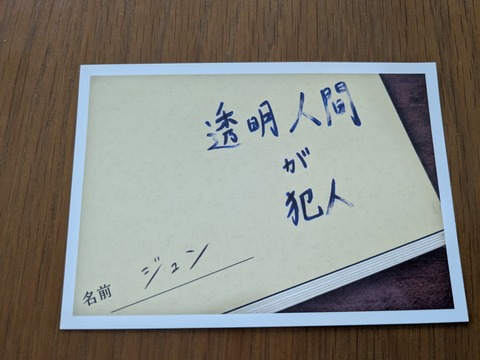 透明人間
が
犯人
名前 ジュン